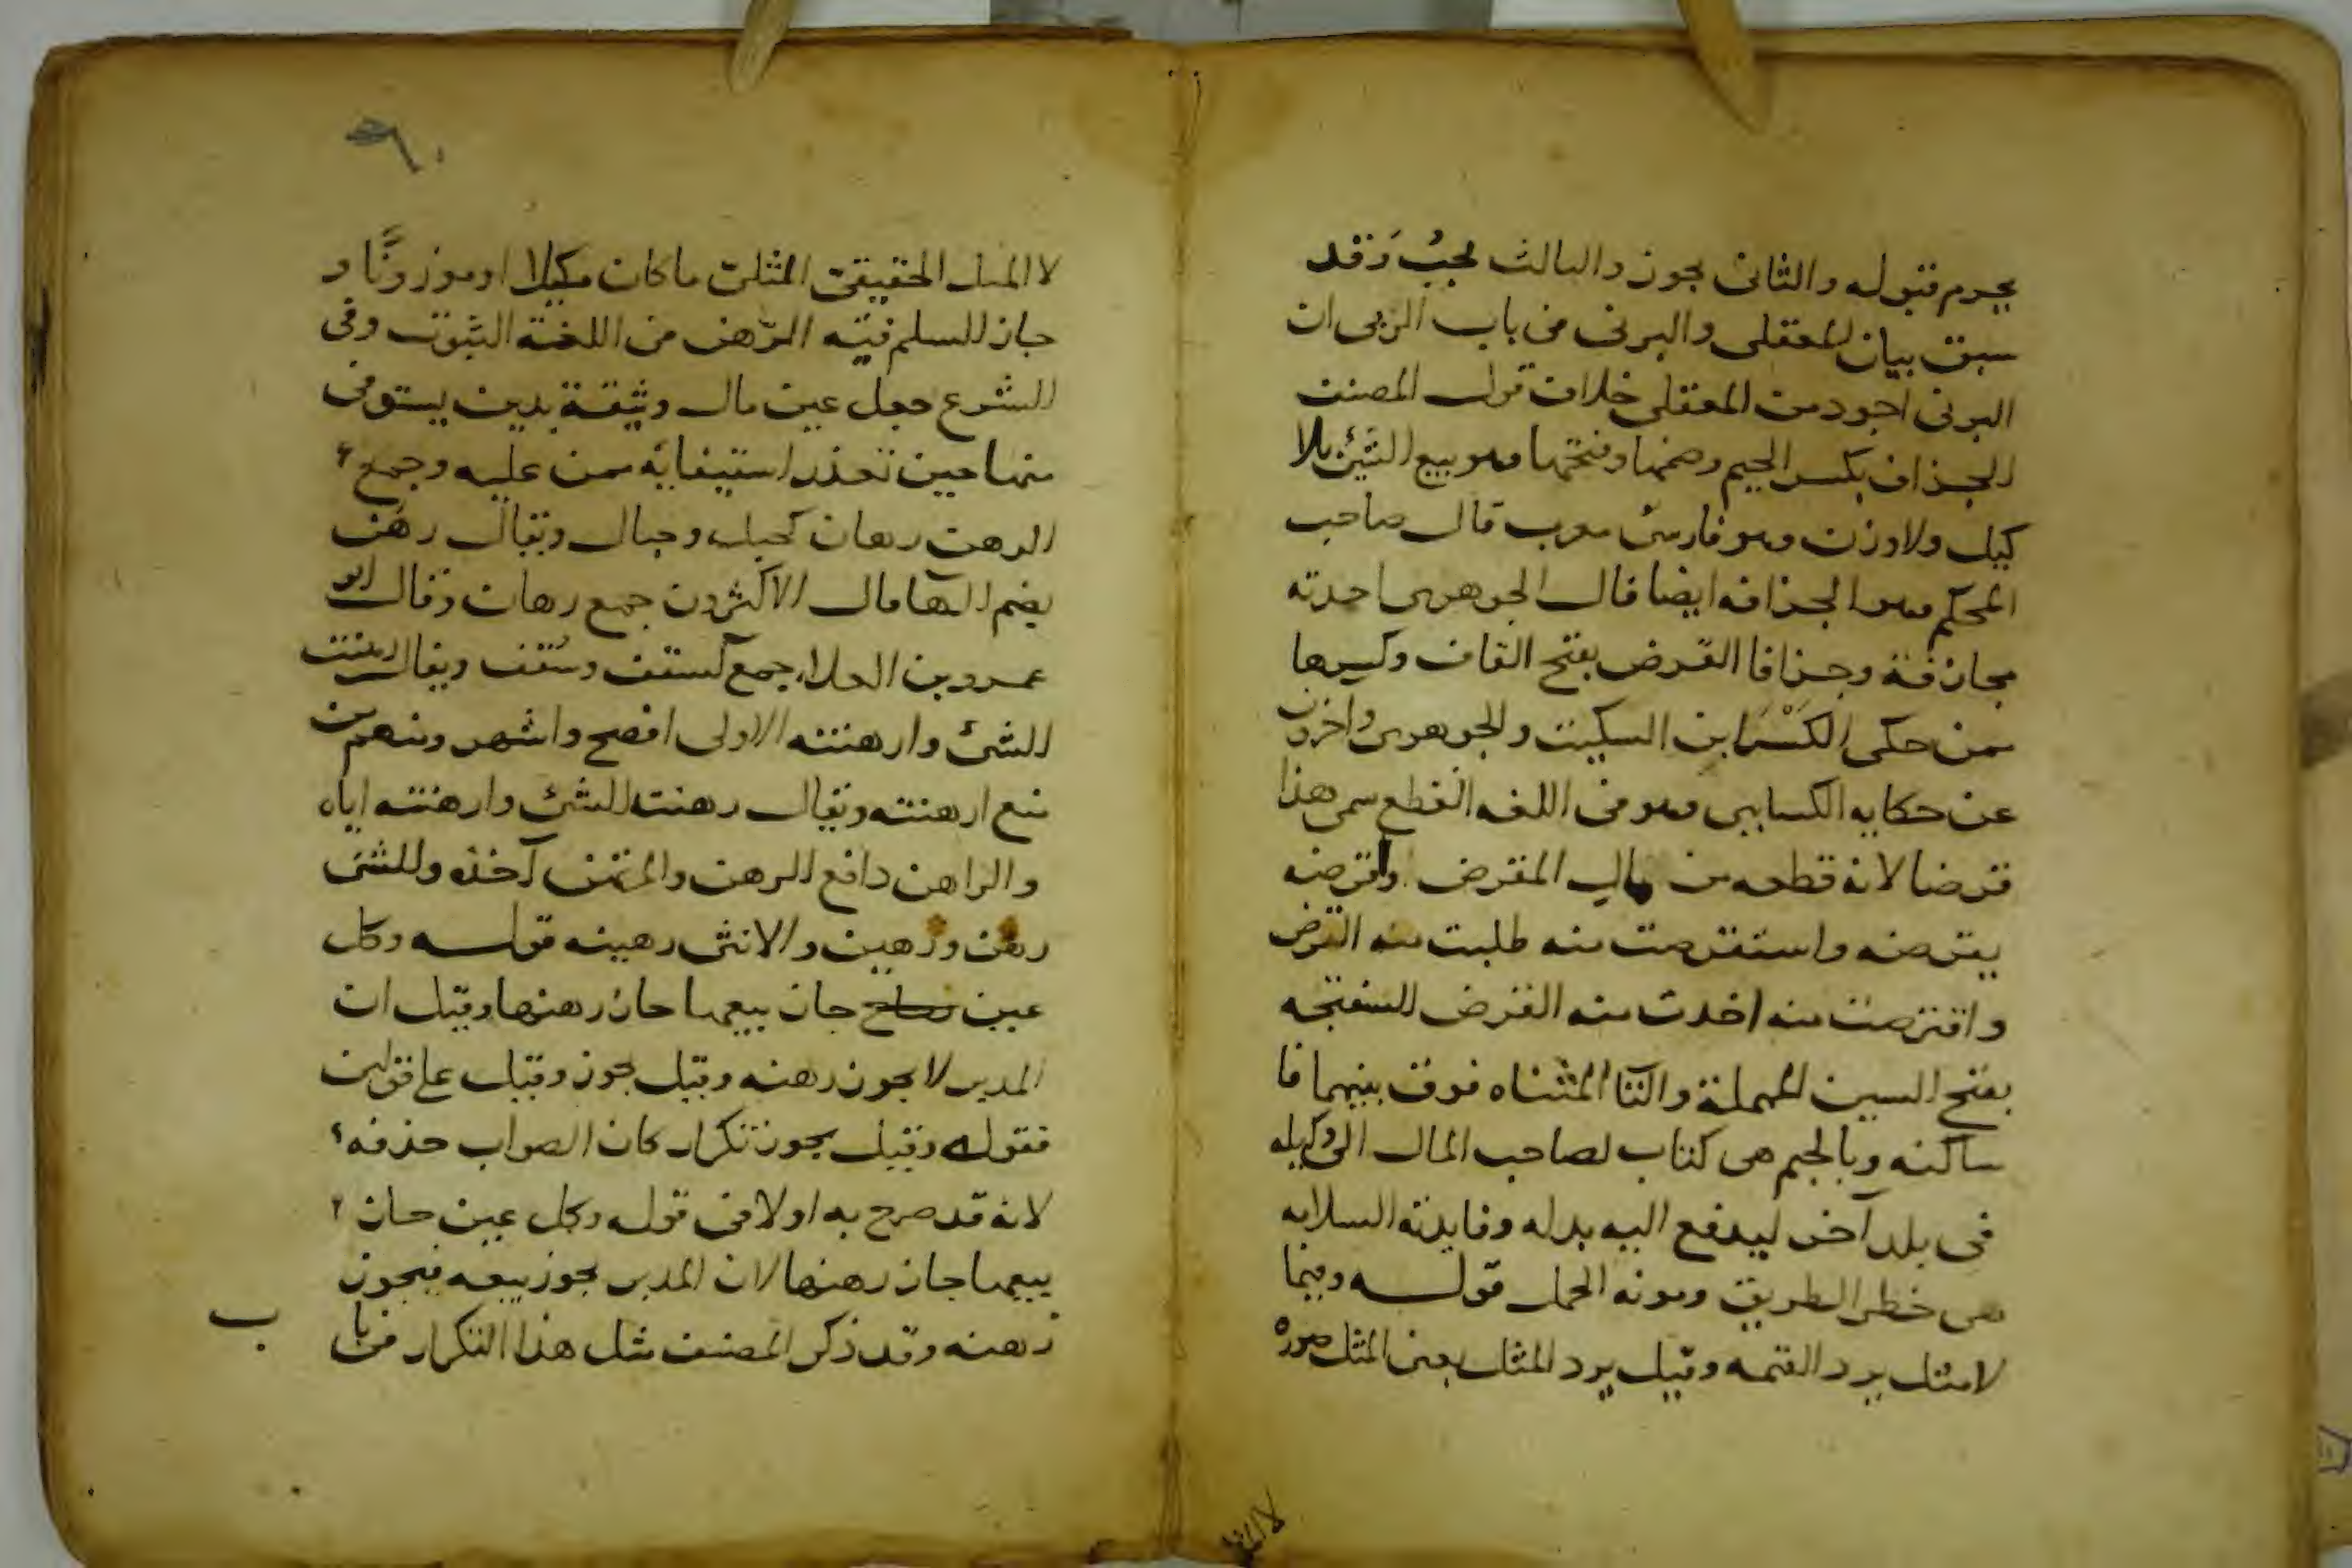 يحرم قبوله والثاني يجوز والثالث يجبُ وَقد
سبق بيان المعقلي والبرني في باب الربى ان
البرني اجود من المعقلي خلاف قول المصنف
الجزاف بكسر الجيم وضمها وفتحها وهو بيع الشئ بلا
كيل ولا وزن وهو فارسي معرب قال صاحب
المحكم وهو الجزافه ايضا قال الجوهري اخذته
مجازفة وجزافا القرض بفتح القاف وكسرها
ممن حكى الكَسْرَ ابن السكيت والجوهرى واخرون
عن حكايه الكسايى وهو في اللغه القطع سمى هذا
قرضا لانه قطعه من مال المقرض واقرضه
يقرضه واستقرضت منه طلبت منه القرض
واقترضت منه اخذت منه القرض السفتجه
بفتح السين المهملة والتآ المثناه فوق بينهما فا
ساكنه وبالجيم هى كتاب لصاحب المال الى وكيله
فى بلد آخر ليدفع اليه بدله وفايدته السلامه
من خطر الطريق ومونه الحمل قولـــه وفيما
لا مثل يرد القيمه وقيل يرد المثل يعنى المثل صوره
لا المثل الحقيقى المثلى ما كان مكيلا او موزونًا و
جاز السلم فيه الرّهن في اللغة الثبوت وفي
الشرع جعل عين مال وثيقة بدين يستوفى
منها حين تعذر استيفايه ممن عليه وجمع
الرهن رهان كحبل وحبال ويقال رهن
بضم الهآ قال الاكثرون جمع رهان وقال ابو
عمرو بن العلاء جمع كسقف وسُقف ويقال رهنت
الشئ وارهنته الاولى افصح واشهر ومنهم من
منع ارهنته ويقال رهنت الشئ وارهنته اياه
والراهن دافع الرهن والمرتهن آخذه والشئ
رهن ورهين والانثى رهينه قولـــه وكل
عين جاز بيعها جاز رهنها وقيل ان
المدبر لا يجوز رهنه وقيل يجوز وقيل على قولين
فقوله وقيل يجوز تكرار كان الصواب حذفه
لانه قد صرح به اولا في قوله وكل عين جاز
بيعها جاز رهنها لان المدبر يجوز بيعه فيجوز
رهنه وقد ذكر المصنف مثل هذا التكرار في با
ب